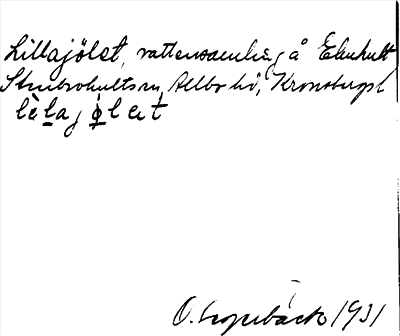 Lillajölet, vattensamling å Elnhult
Stenbrohults sn, Allbo hd, Kronobergs l
lèlajǫ̀lət
O. Lopebäck 1931